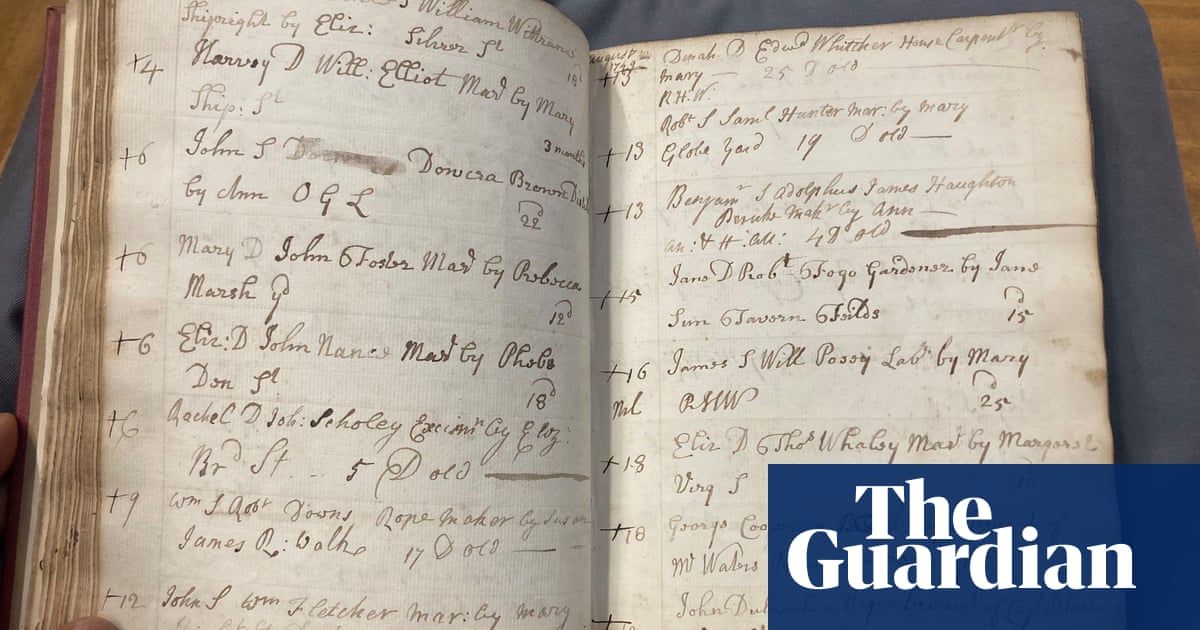 William
Shipright by Eliz:
+4 Harvey D Will: Elliot Mar by Mary
Ship: St
3 months
+6 John S Dowcra Brown
by Ann O G L
22
+6 Mary D John Foster Mar by Rebecca
Marsh yd
12d
+6 Eliz: D John Nance Mar by Phebe
Den St
18d
+6 Rachel D Joh: Scholey by Eliz:
Brd St 5 D old
+9 Wm S Robt Downs Rope maker by Susan
James R: Walk 17 D old
+12 John S Wm Fletcher mar: by mary
august
+13 Dinah D Edwd Whitcher House Carpentr by
mary 25 D old
R.H.W.
Robt S Saml Hunter mar: by mary
+13 Globe Yard 19 D old
+13 Benjamn S Adolphus James Haughton
by Ann
4 D old
+15 Jane D Robt Fogo Gardener by Jane
Sun Tavern Feilds 15d
+16 James S Will Posey Labr by Mary
RHW 25d
+18 Eliz D Thos Whaley Mar by Margaret
Virg S
+18 George
Mr Waters
John a Negro Servant of
The
Guardian